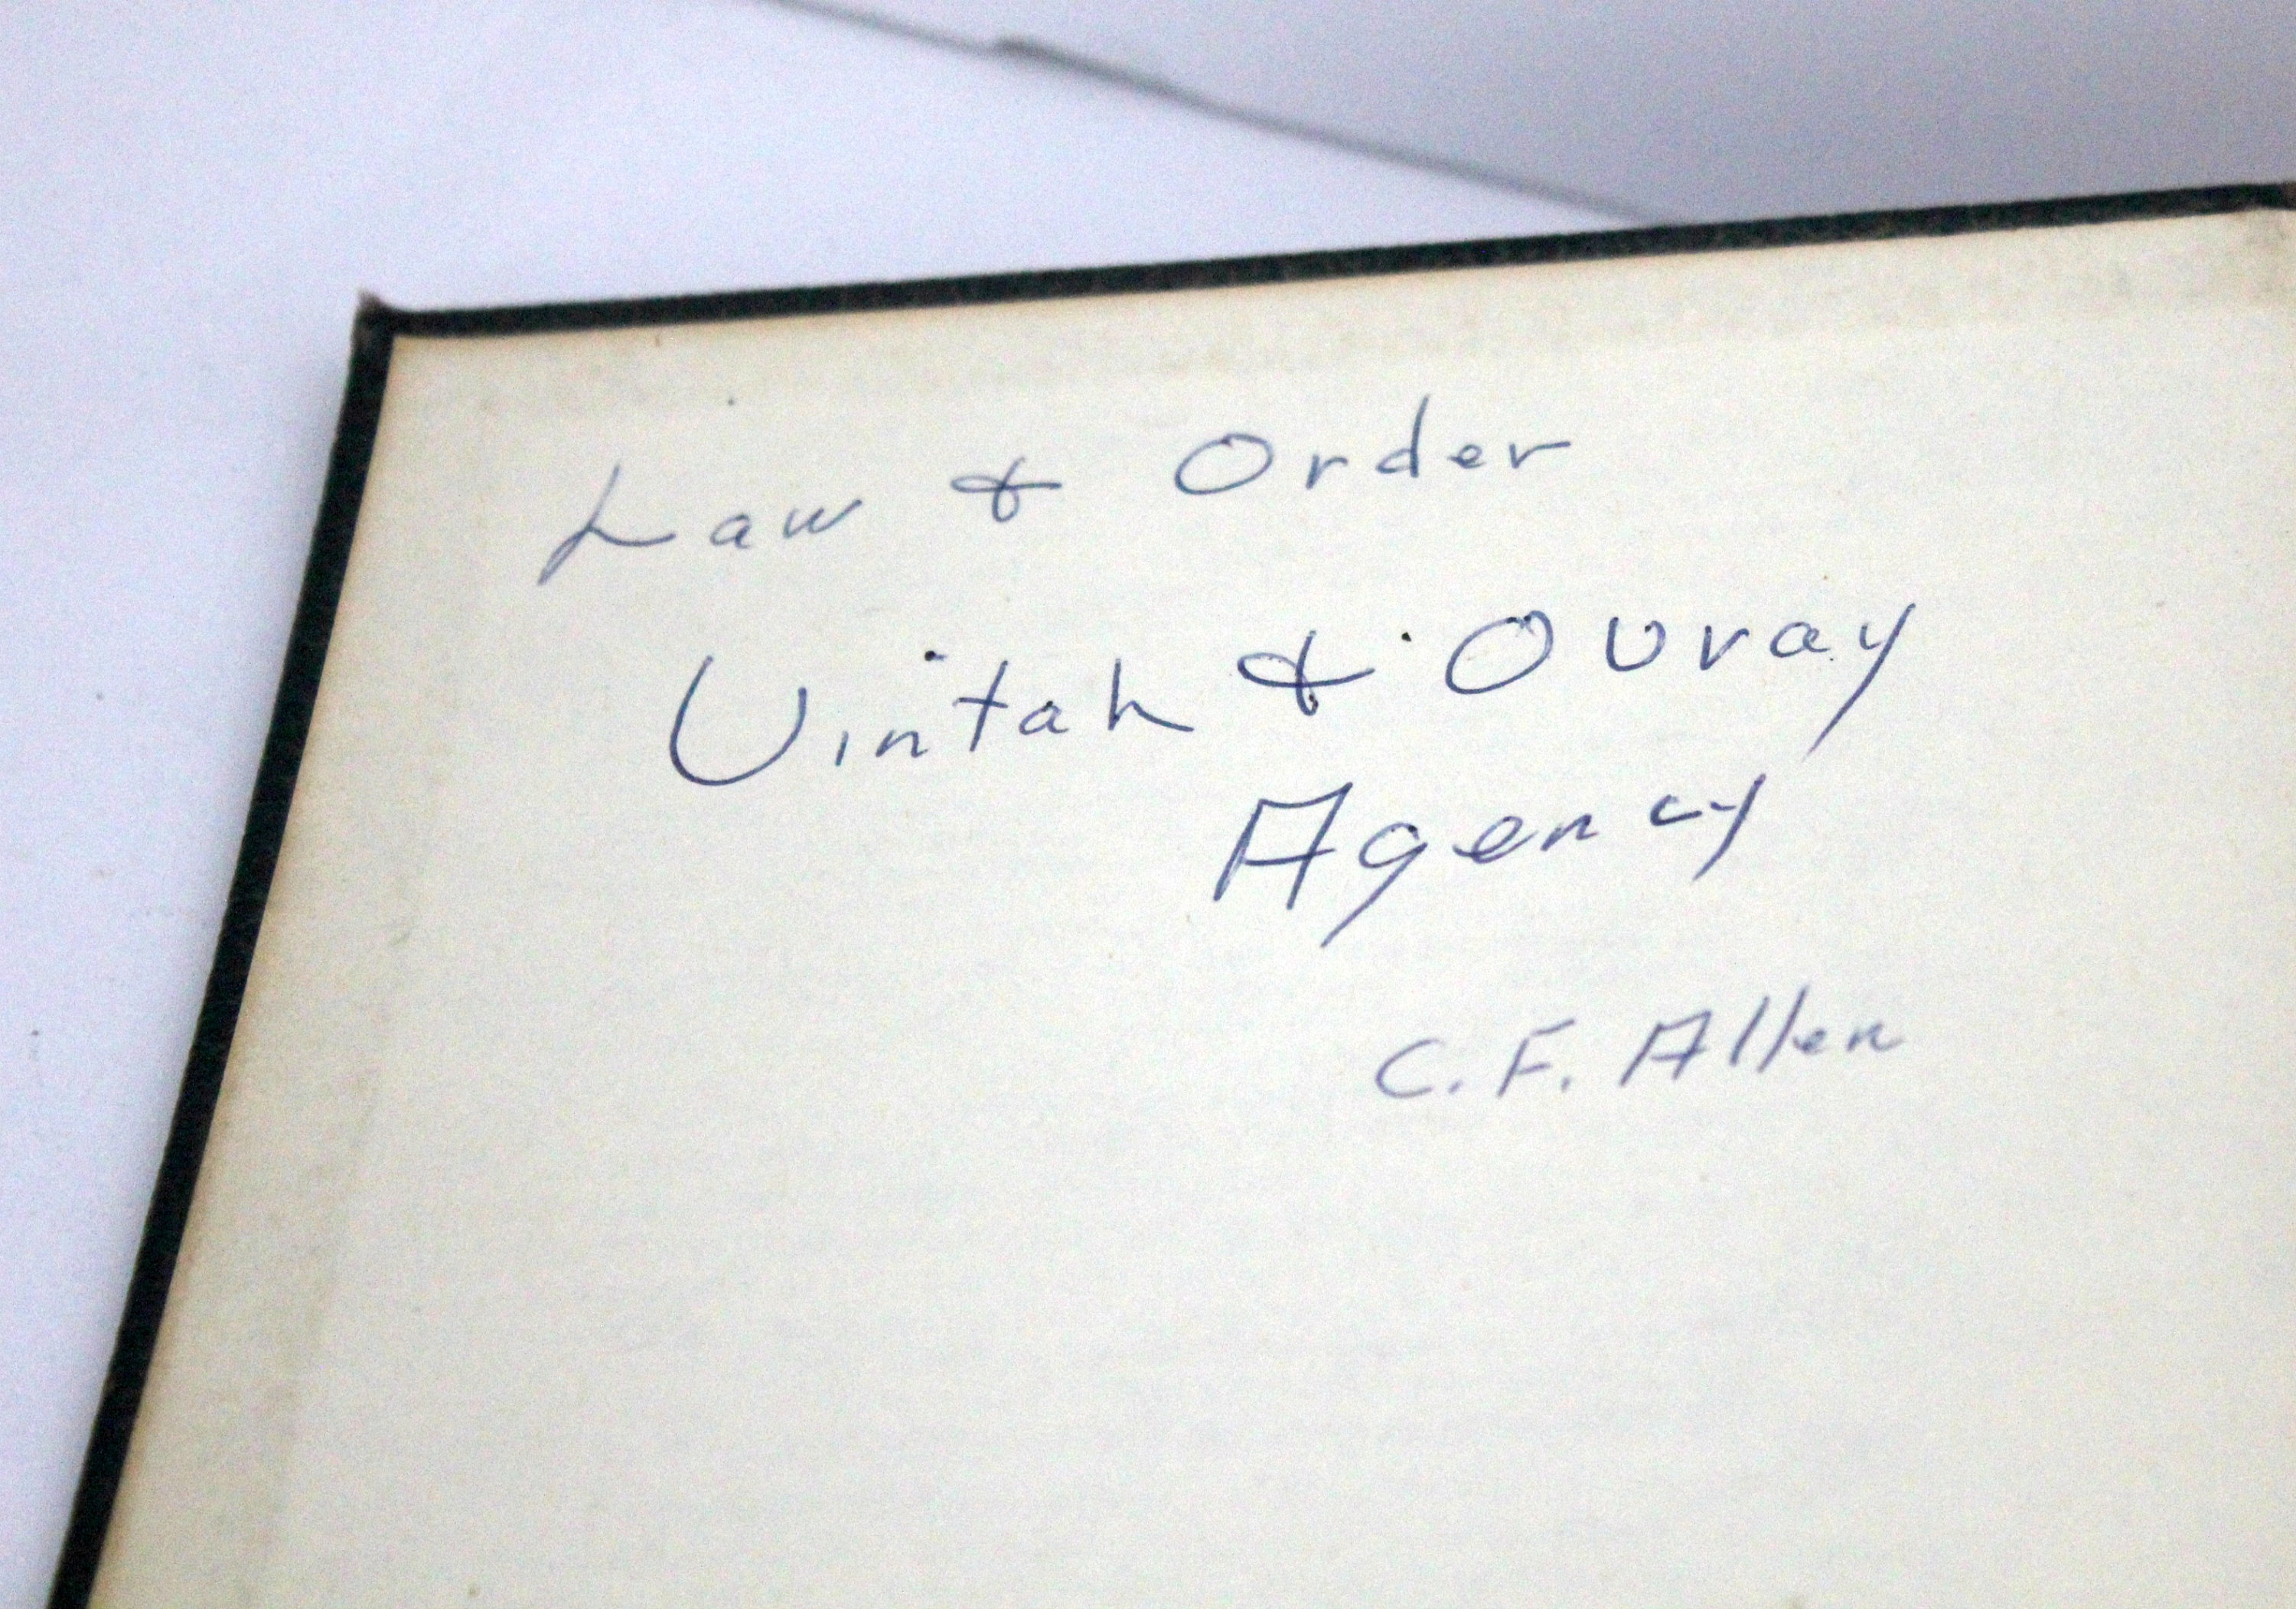 Law & Order
Uintah & Ouray
Agency
C. F. Allen